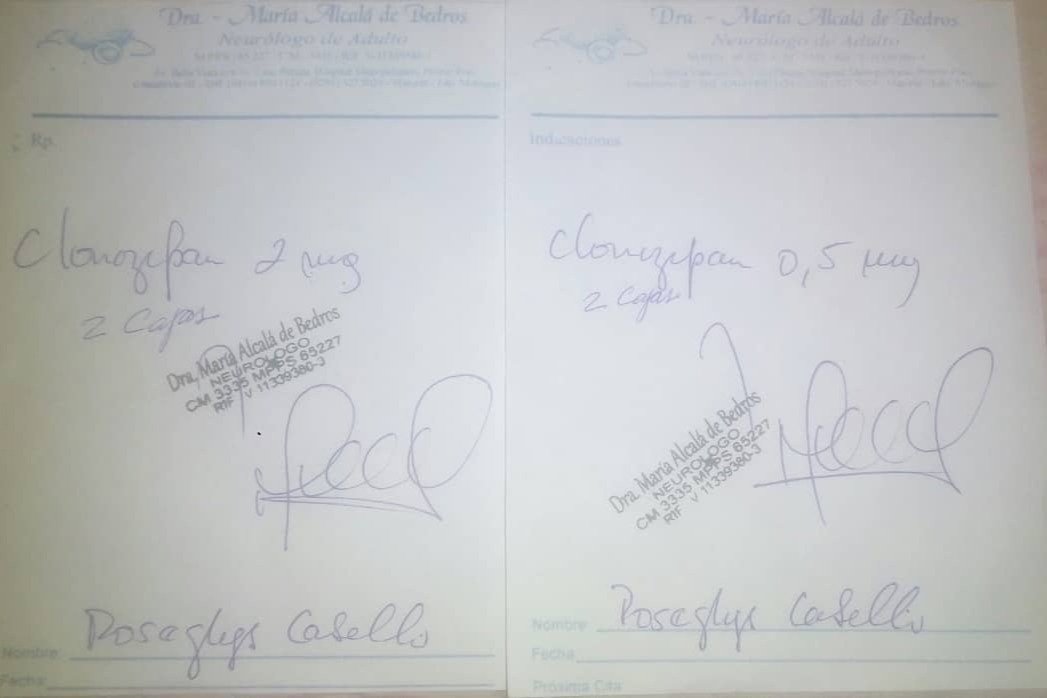 Dra. - María Alcalá de Bedros
Neurólogo de Adulto
Rp.
Clonazepan 2 mg
2 Cajas
Dra. María Alcalá de Bedros
NEUROLOGO
CM 3335 MPPS 65227
RIF V 11339380-3
Roseglys Casello
Nombre
Fecha
Dra. - María Alcalá de Bedros
Neurólogo de Adulto
Indicaciones
Clonazepan 0,5 mg
2 Cajas
Dra. María Alcalá de Bedros
NEUROLOGO
CM 3335 MPPS 65227
RIF V 11339380-3
Nombre Roseglys Casello
Fecha
Próxima Cita